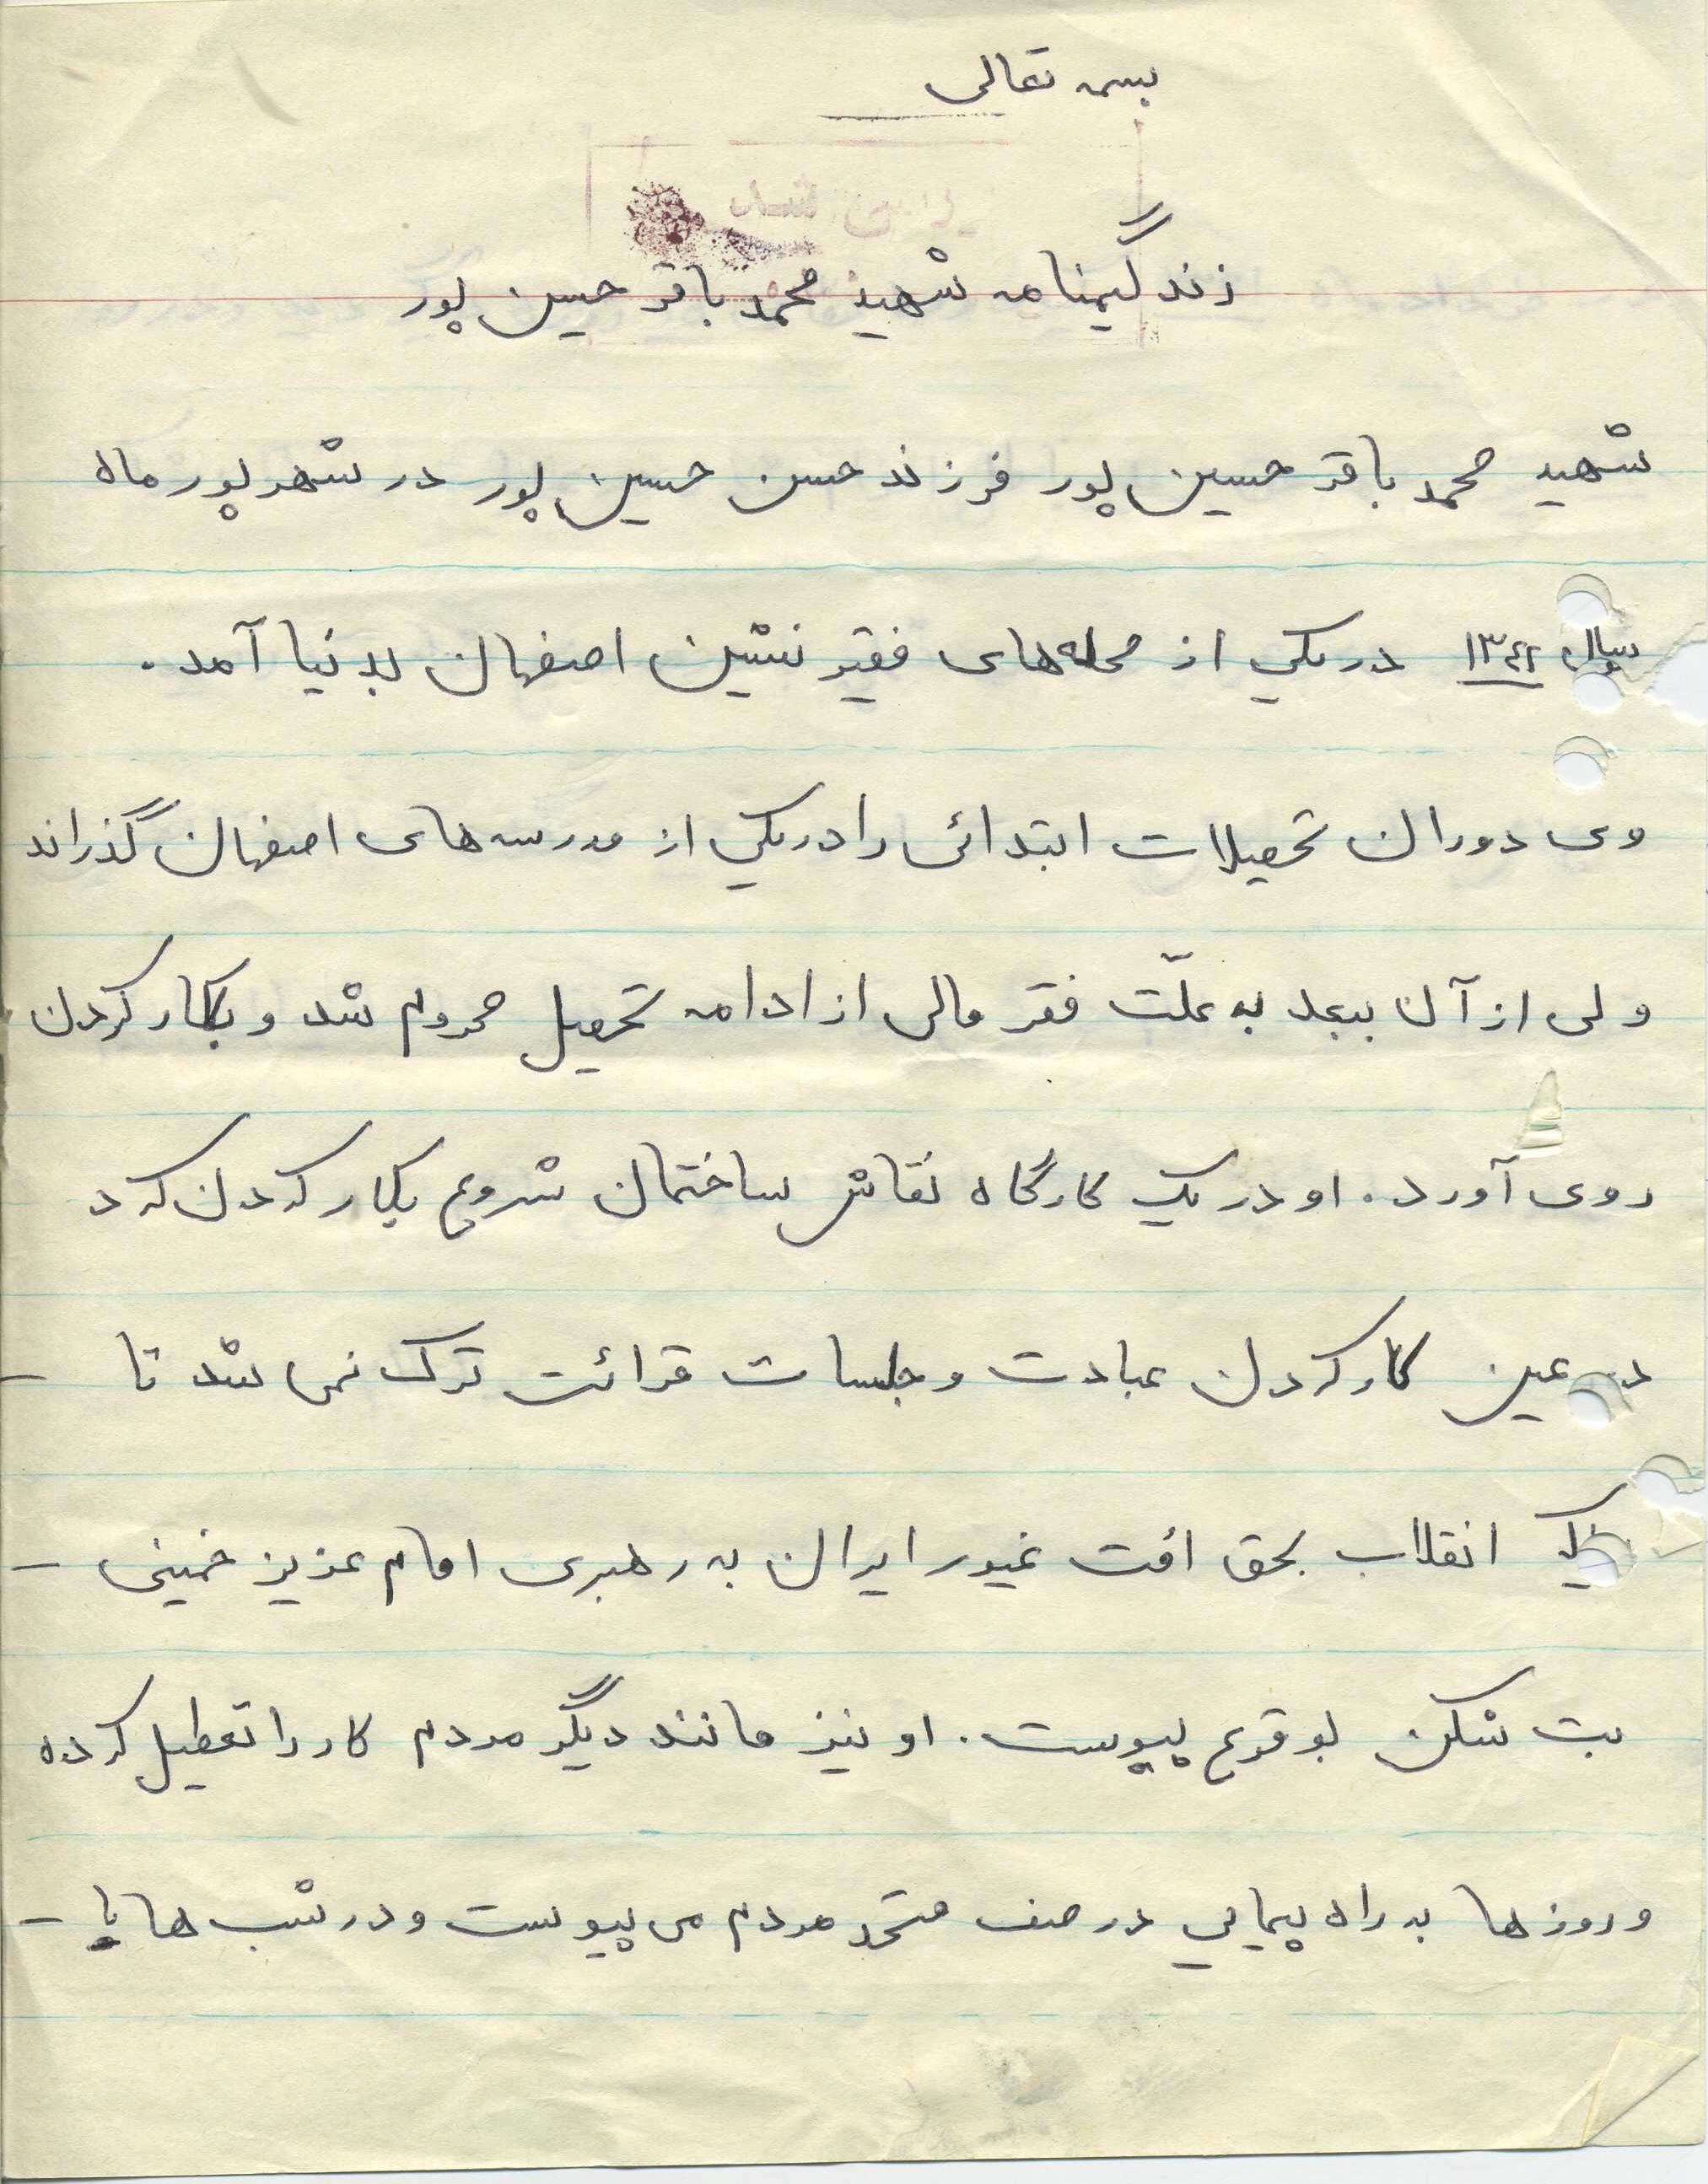 بسمه تعالی
زندگینامه شهید محمد باقر حسین پور
شهید محمد باقر حسین پور فرزند حسن حسین پور در شهریور ماه
سال ۱۳۴۲ در یکی از محله‌های فقیر نشین اصفهان بدنیا آمد.
وی دوران تحصیلات ابتدائی را در یکی از مدرسه های اصفهان گذراند
ولی از آن ببعد به علّت فقر مالی از ادامه تحصیل محروم شد و بکار کردن
روی آورد. او در یک کارگاه نقاش ساختمان شروع بکار کردن کرد
در عین کار کردن عبادت و جلسات قرائت ترک نمی شد تا -
انقلاب بحق امت غیور ایران به رهبری امام عزیز خمینی -
بت شکن بوقوع پیوست. او نیز مانند دیگر مردم کار را تعطیل کرده
و روزها به راه پیمایی در صف متحد مردم می پیوست و در شب ها با -